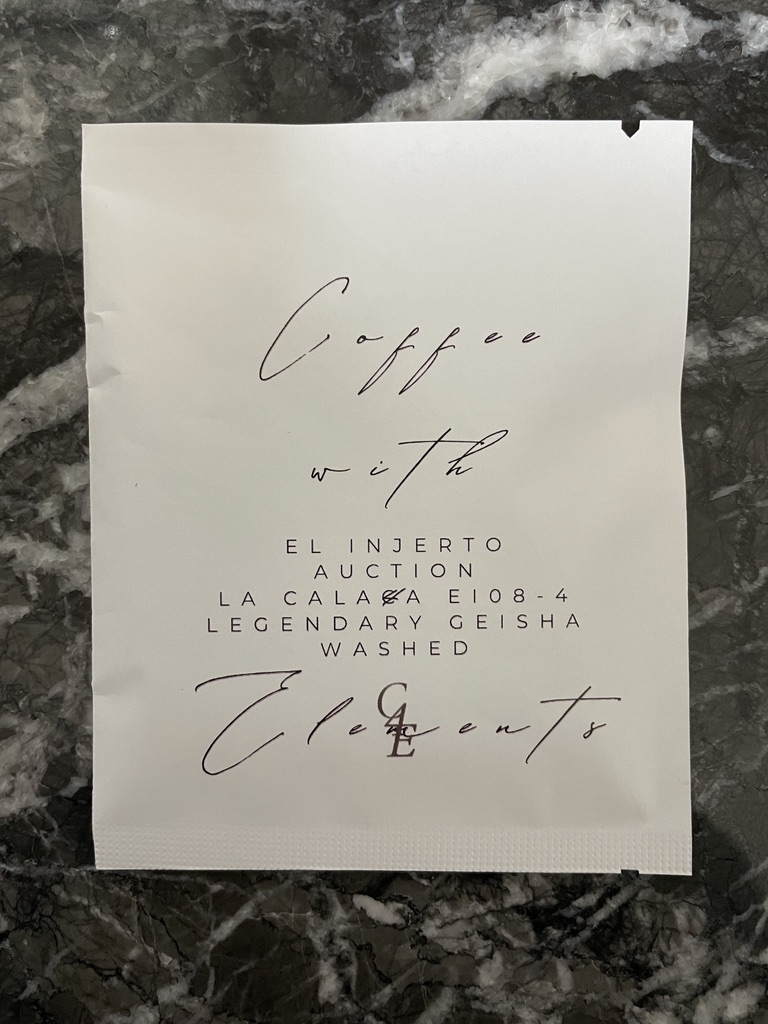 Coffee
with
EL INJERTO
AUCTION
LA EI08-4
LEGENDARY GEISHA
WASHED
Elements